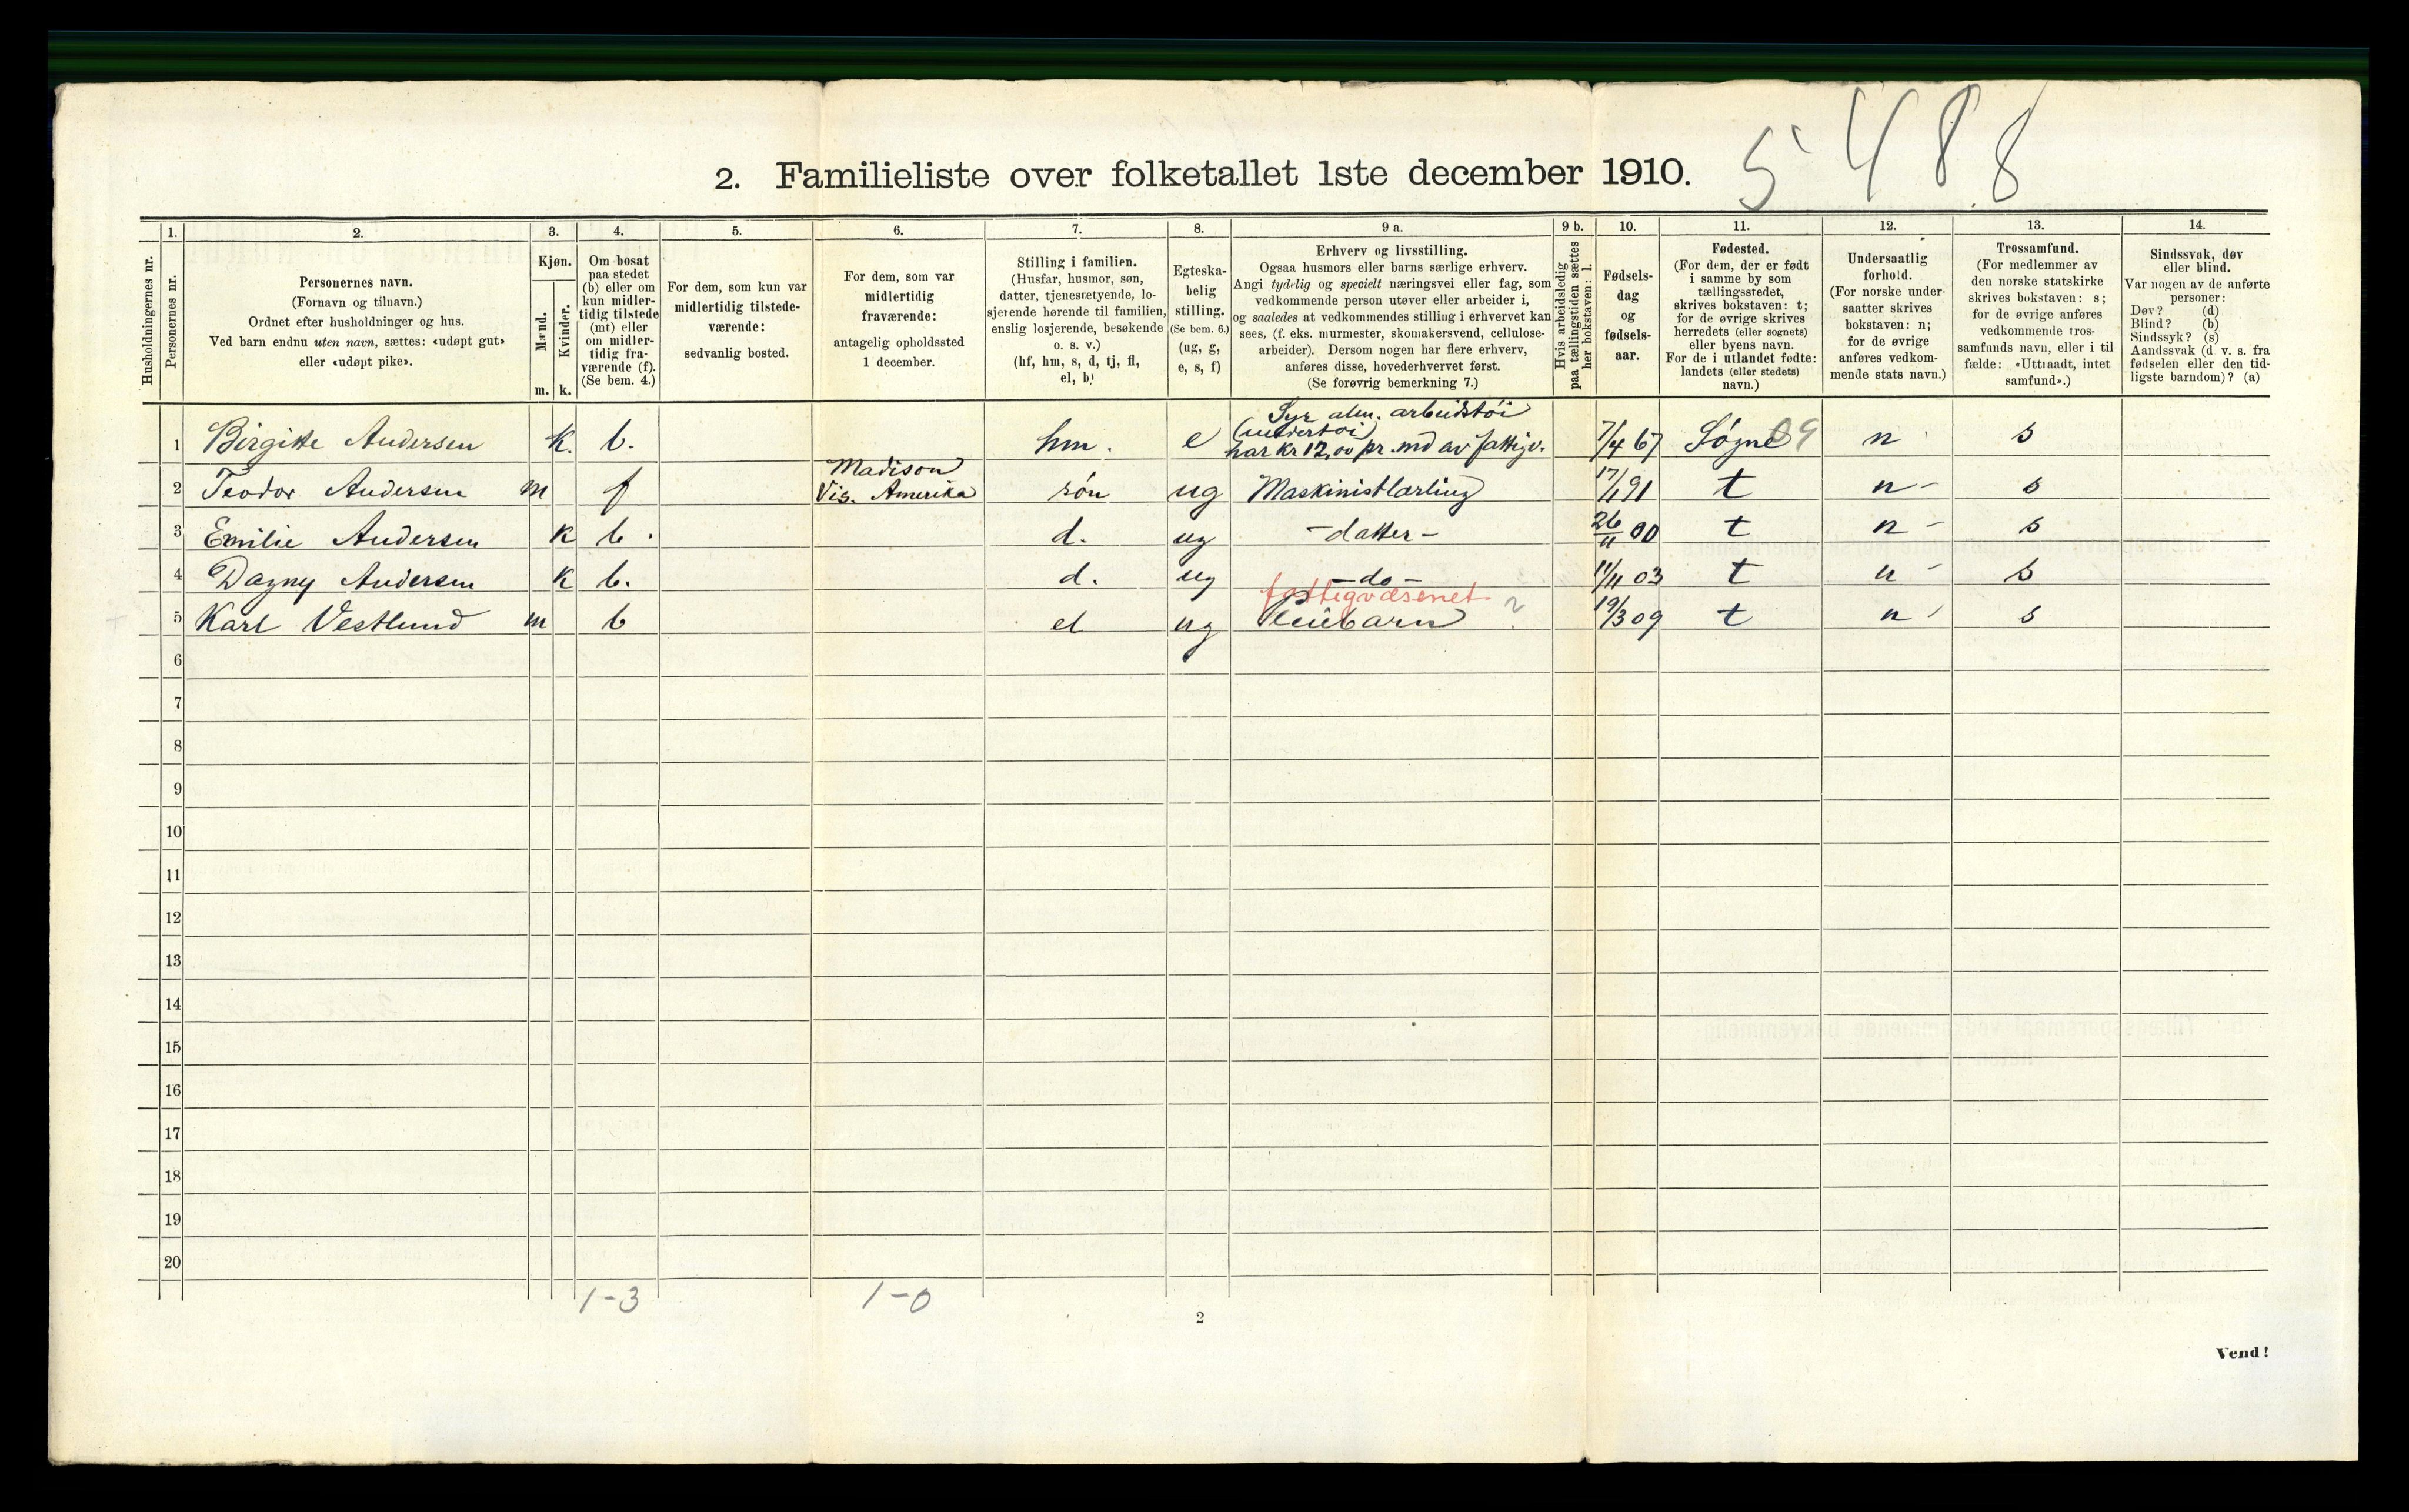 5 4 8 8
2. Familieliste over folketallet 1ste december 1910.
1. 2. 3. 4. 5. 6. 7. 8. 9 a. 9 b. 10. 11. 12. 13. 14.
Husholdningernes nr.
Personernes nr.
Personernes navn.
(Fornavn og tilnavn.)
Ordnet efter husholdninger og hus.
Ved barn endnu uten navn, sættes: «udøpt gut»
eller «udøpt pike».
Kjøn.
Mænd.
m.
Kvinder.
k.
Om bosat
paa stedet
(b) eller om
kun midler-
tidig tilstede
(mt) eller
om midler-
tidig fra-
værende (f).
(Se bem. 4.)
For dem, som kun var
midlertidig tilstede-
værende:
sedvanlig bosted.
For dem, som var
midlertidig
fraværende:
antagelig opholdssted
1 december.
Stilling i familien.
(Husfar, husmor, søn,
datter, tjenesretyende, lo-
sjerende hørende til familien,
enslig losjerende, besøkende
o. s. v.)
(hf, hm, s, d, tj, fl,
el, b)
Egteska-
belig
stilling.
(Se bem. 6.)
(ug, g,
e, s, f)
Erhverv og livsstilling.
Ogsaa husmors eller barns særlige erhverv.
Angi tydelig og specielt næringsvei eller fag, som
vedkommende person utøver eller arbeider i,
og saaledes at vedkommendes stilling i erhvervet kan
sees, (f. eks. murmester, skomakersvend, cellulose-
arbeider). Dersom nogen har flere erhverv,
anføres disse, hovederhvervet først.
(Se forøvrig bemerkning 7.)
Hvis arbeidsledig
paa tællingstiden sættes
her bokstaven: l.
Fødsels-
dag
og
fødsels-
aar.
Fødested.
(For dem, der er født
i samme by som
tællingsstedet,
skrives bokstaven: t;
for de øvrige skrives
herredets (eller sognets)
eller byens navn.
For de i utlandet fødte:
landets (eller stedets)
navn.)
Undersaatlig
forhold.
(For norske under-
saatter skrives
bokstaven: n;
for de øvrige
anføres vedkom-
mende stats navn.)
Trossamfund.
(For medlemmer av
den norske statskirke
skrives bokstaven: s;
for de øvrige anføres
vedkommende tros-
samfunds navn, eller i til
fælde: «Uttraadt, intet
samfund».)
Sindssvak, døv
eller blind.
Var nogen av de anførte
personer:
Døv? (d)
Blind? (b)
Sindssyk? (s)
Aandssvak (d v. s. fra
fødselen eller den tid-
ligste barndom)? (a)
Syr alm. arbeidstøi
(undertøi)
1 Birgitte Andersen k. b. hm. e har kr 12,00 pr. md av fattigv. 7/4 67 Søgne 09 n s
Madison
2 Teodor Andersen m f Vis. Amerika søn ug Maskinistlærling 17/1 91 t n - s
3 Emilie Andersen k b. d. ug - datter - 26/11 00 t n - s
4 Dagny Andersen k b. d. ug - do - 11/11 03 t n - s
fattigvæsenet
5 Karl Vestlund m b el ug Pleiebarn ? 19/3 09 t n - s
6
7
8
9
10
11
12
13
14
15
16
17
18
19
20
1-3 1-0
2
Vend!